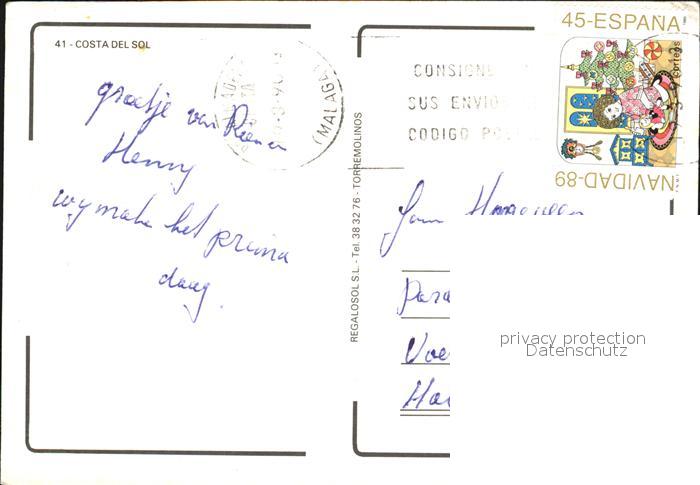 41 - COSTA DEL SOL
groetje van
Henny
wy maken het prima
daag.
(MALAGA)
REGALOSOL S.L. - Tel. 38 32 76 - TORREMOLINOS
CONSIGNE
SUS ENVIO
CODIGO POS
45-ESPAÑA
correos
NAVIDAD-89
Para
Voe
Ha
privacy protection
Datenschutz